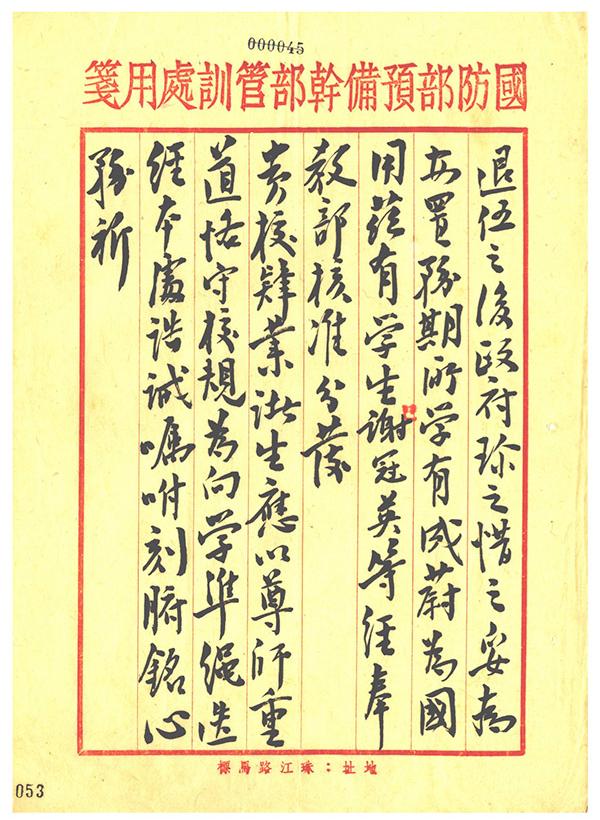 000045
國防部預備幹部管訓處用箋
退伍之後政府珍之惜之妥為
安置務期所学有成蔚為國
用茲有学生謝冠英等経奉
教部核准分發
貴校肄業諸生應以尊師重
道恪守校規為向学準繩迭
経本處諄誡囑咐刻腑銘心
務祈
地址：珠江路馬標
053